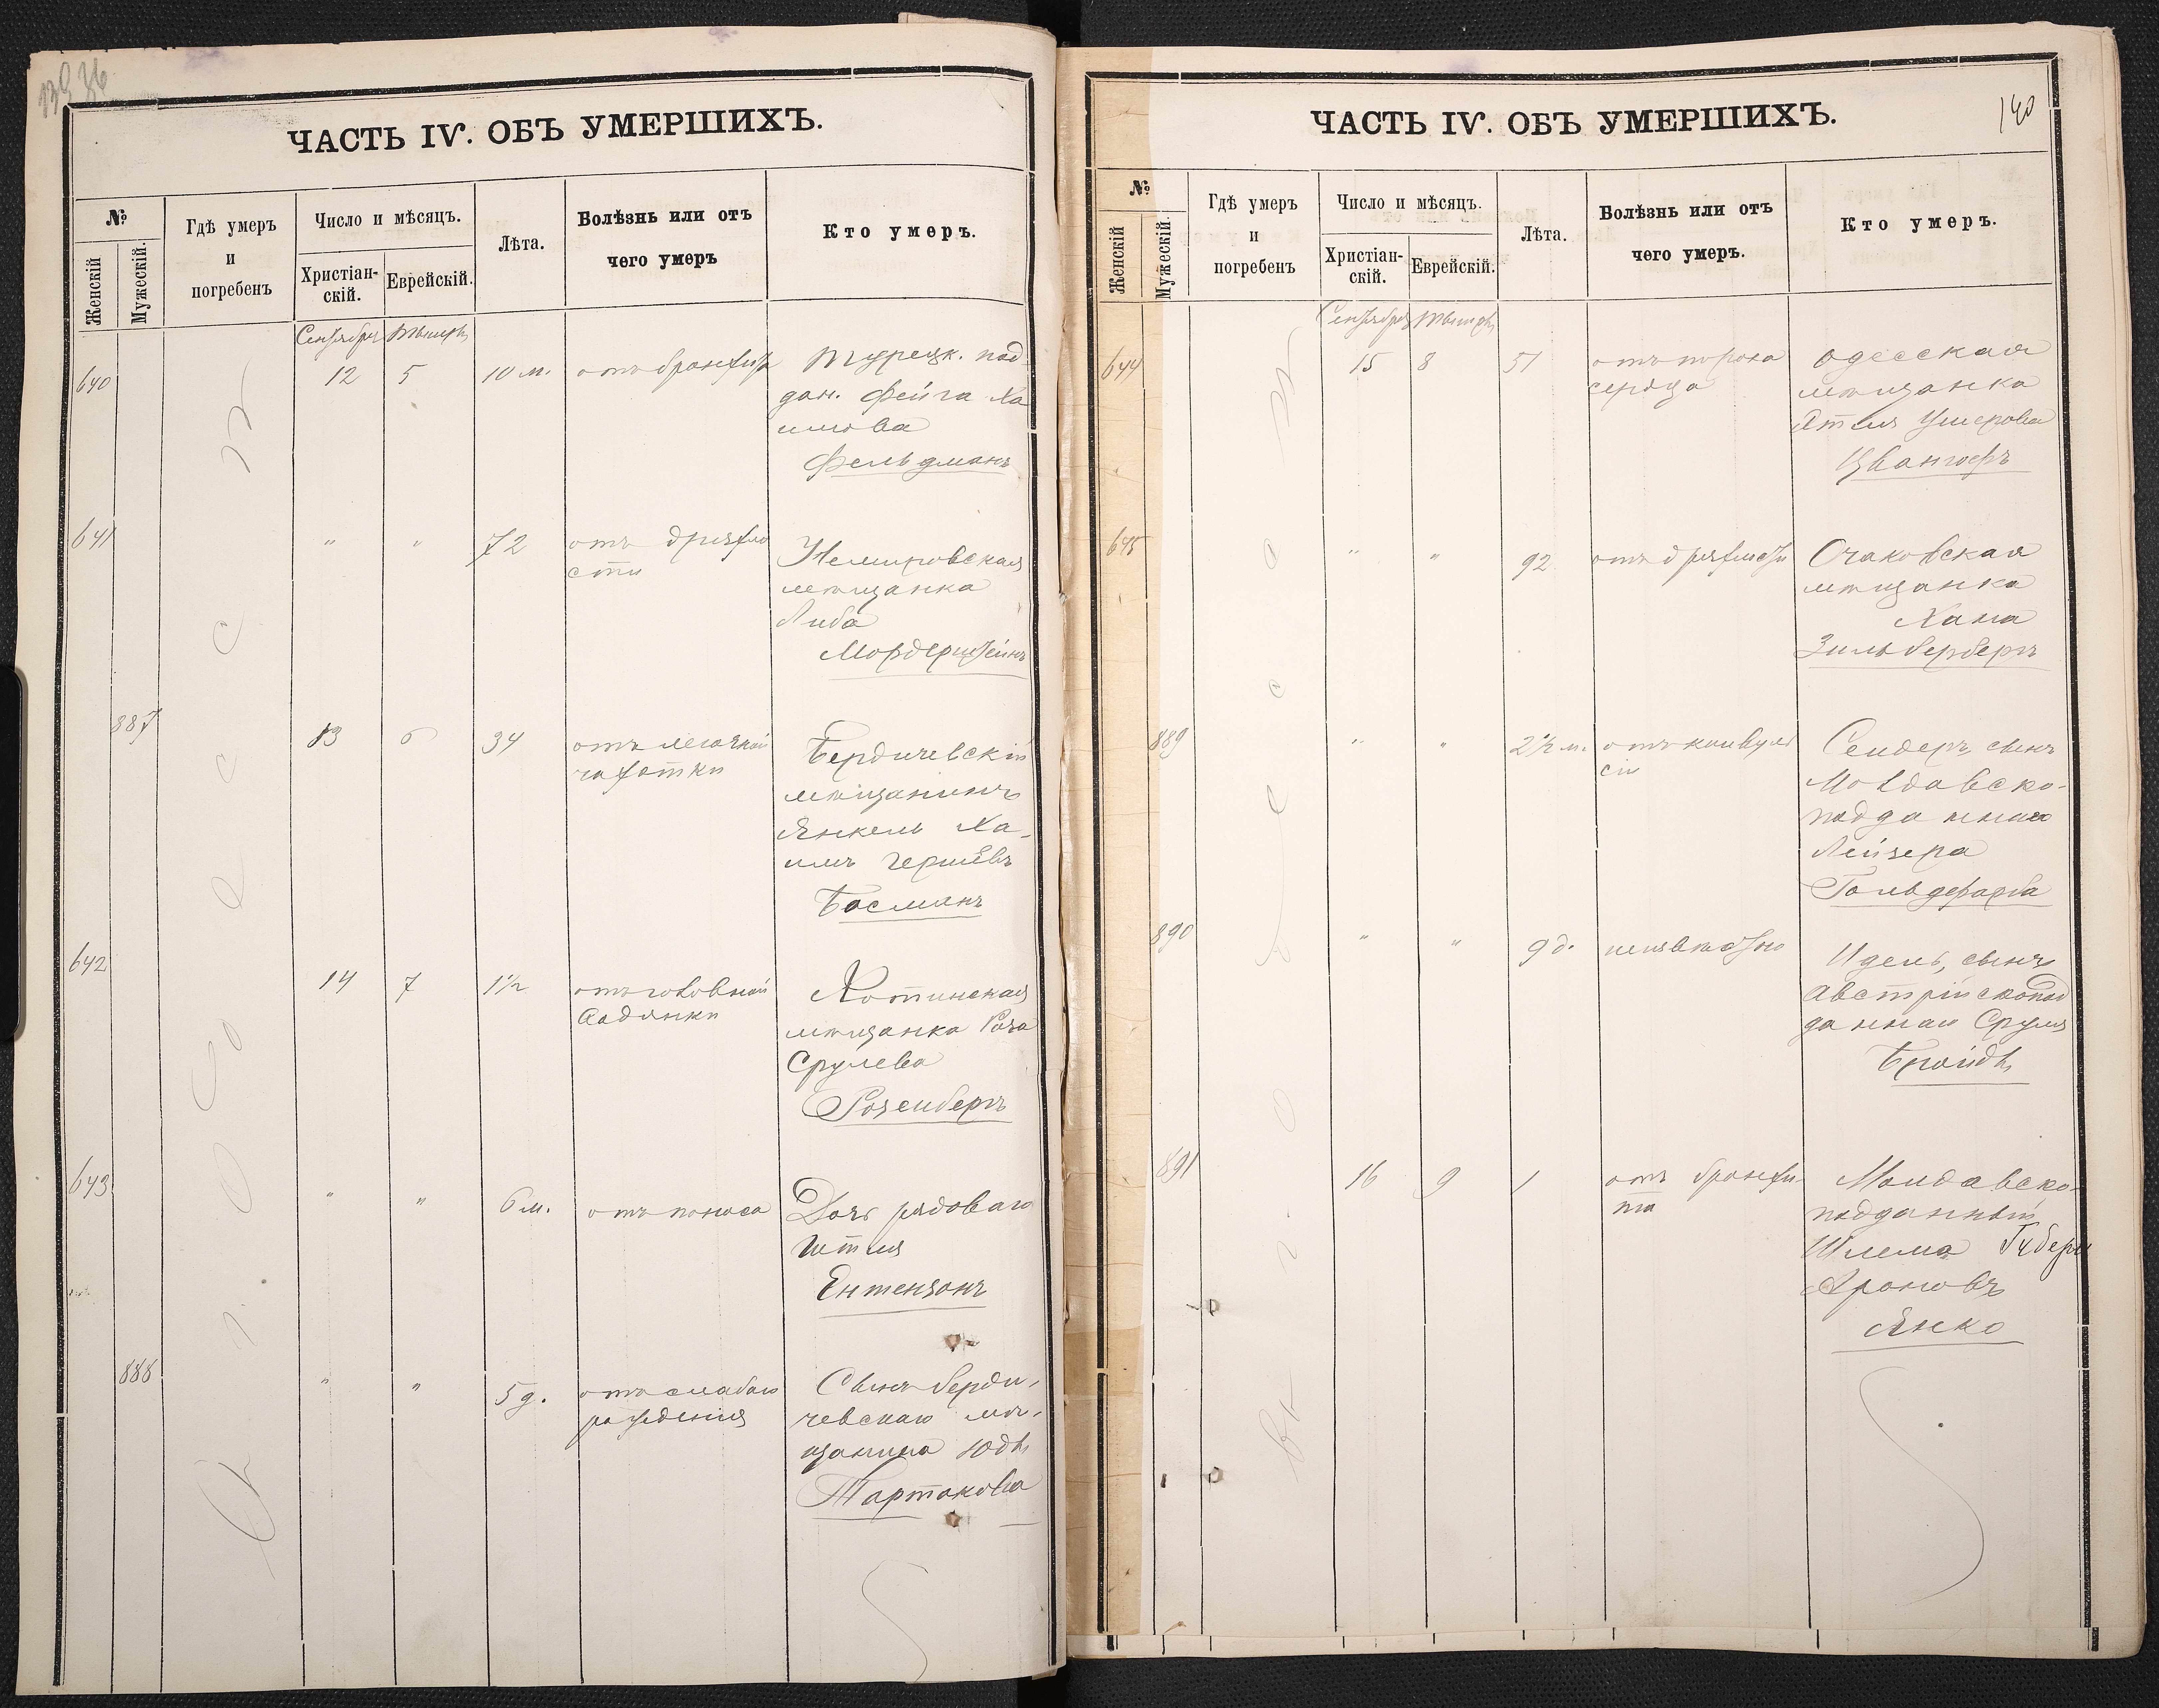 ЧАСТЬ IV. ОБЪ УМЕРШИХЪ.
№
Женскій
Мужескій.
Гдѣ умеръ
и
погребенъ
Число и мѣсяцъ.
Христіан-
скій.
Еврейскій.
Лѣта.
Болѣзнь или отъ
чего умеръ
Кто умеръ.
въ г. Одессѣ
Сентября Тышре
640 12 5 10 м. отъ бронхита Турецк. под
дан. Фейга Ха
имова
Фельдманъ
641 " " 72 отъ дряхло
сти
Немировская
мѣщанка
Либа
Мордерштейнъ
887 13 6 34 отъ легочной
чахотки
Бердичевскій
мѣщанинъ
Янкель Ха-
имъ Гершевъ
Басманъ
642 14 7 1½ отъ головной
водянки
Хотинская
мѣщанка Роза
Срулева
Розенбергъ
643 " " 6 м. отъ поноса Дочь рядоваго
Ентензонъ
888 " " 5 д. отъ слабаго
рожденія
Сынъ берди-
чевскаго мѣ-
щанина Юдѣ
Тартакова
ЧАСТЬ IV. ОБЪ УМЕРШИХЪ.
140
№
Женскій
Мужескій.
Гдѣ умеръ
и
погребенъ
Число и мѣсяцъ.
Христіан-
скій.
Еврейскій.
Лѣта.
Болѣзнь или отъ
чего умеръ.
Кто умеръ.
въ г. Одессѣ
Сентября Тышре
644 15 8 51 отъ порока
сердца
Одесская
мѣщанка
Этля Ушерова
645 " " 92 отъ дряхлости Очаковская
мѣщанка
Хана
Зильбербергъ
889 " " 2½ м. отъ конвуль
сіи
Сендеръ, сынъ
Молдавско-
подданнаго
Лейзера
Гольдфарба
890 " " 9 д. неизвѣстно Идель, сынъ
Австрійскопод
даннаго Сруля
891 16 9 1 отъ бронхи-
та
Молдавско-
подданный
Шлема
Ароновъ
Янко